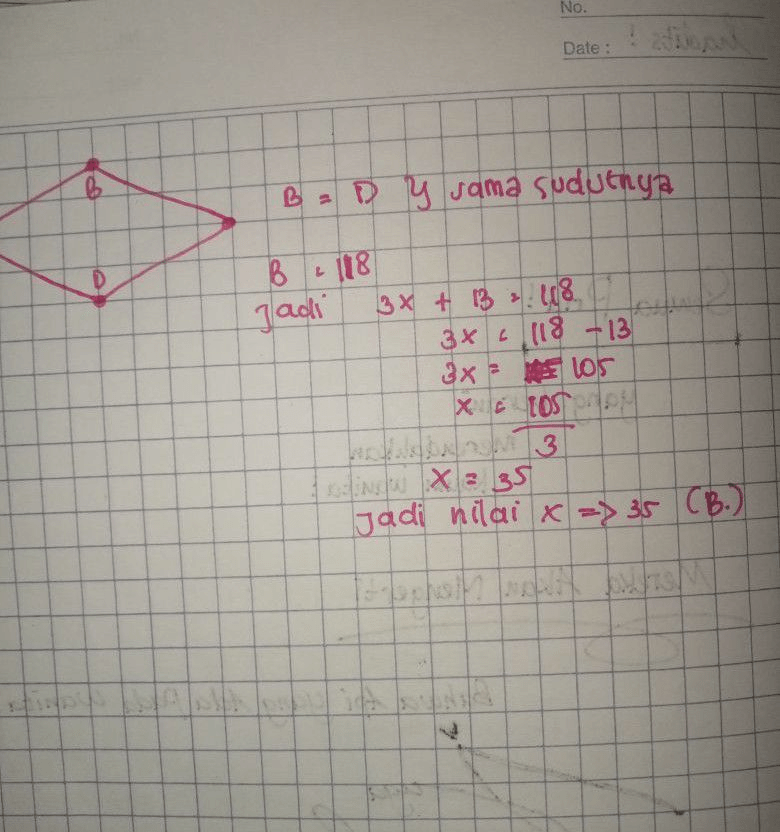 No.
Date :
B
D
B = D y sama sudutnya
B = 118
Jadi 3x + 13 = 118
3x = 118 - 13
3x = 105
x = 105
3
x = 35
Jadi nilai x => 35 (B.)
Mereka Akan Mengerti